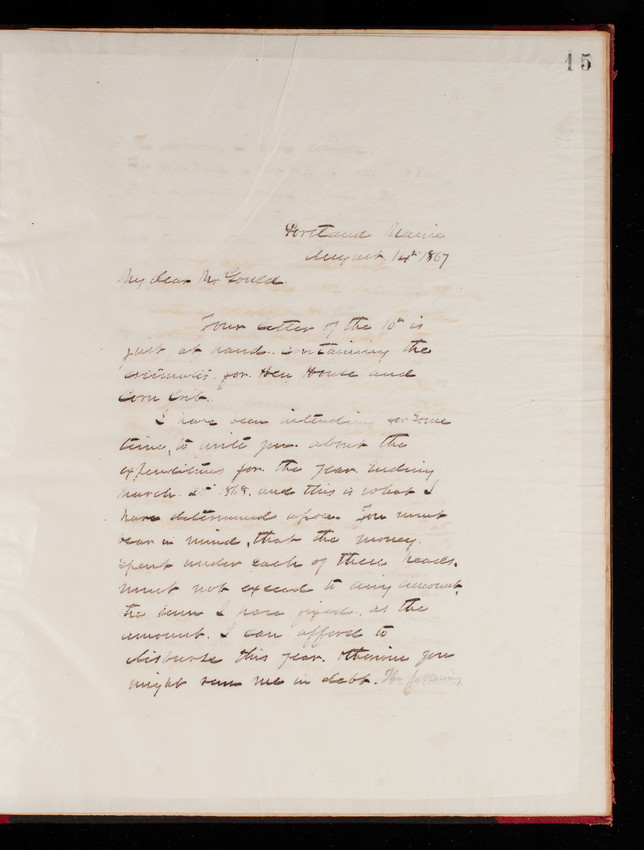 15
Portland Maine
August 14th 1867
My dear Mr Gould.
Your letter of the 10th is
just at hand. containing the
estimates. for. Hen House and
Corn Crib.
I have been intending for some
time, to write you. about the
expenditures for. the year. Ending
March 1868. and this is what I
have determined upon. You must
bear in mind, that the money.
Spent under each of these heads.
must not exceed to any amount,
the sum I have fixed. as the
amount. I can afford to
disburse this year. otherwise you
might run me in debt. The following